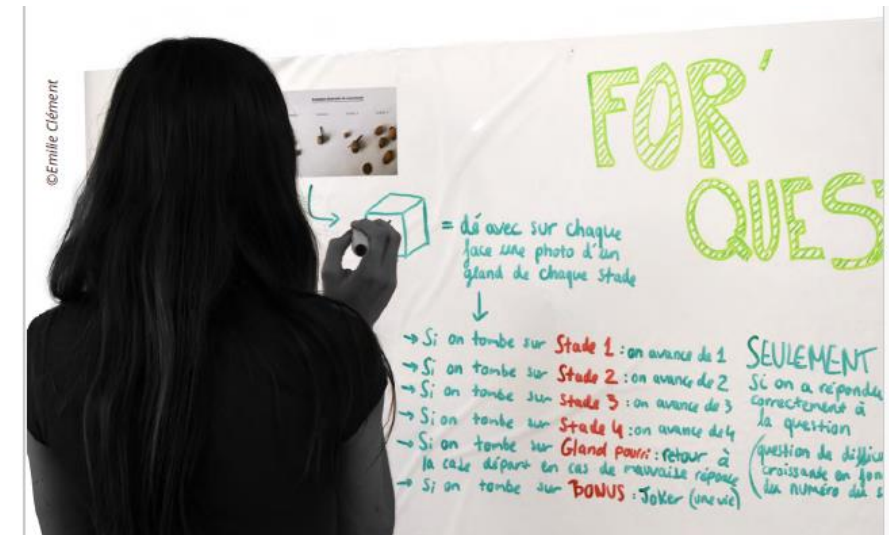 ©Emilie Clément
FOR'
QUES
= dé avec sur chaque
face une photo d'un
gland de chaque stade
→ Si on tombe sur Stade 1 : on avance de 1
→ Si on tombe sur Stade 2 : on avance de 2
→ Si on tombe sur Stade 3 : on avance de 3
→ Si on tombe sur Stade 4 : on avance de 4
→ Si on tombe sur Gland pourri : retour à
la case départ en cas de mauvaise réponse
→ Si on tombe sur BONUS : Joker (une vie)
SEULEMENT
Si on a répondu
correctement à
la question
(question de difficu
croissante en fon
du numéro du s